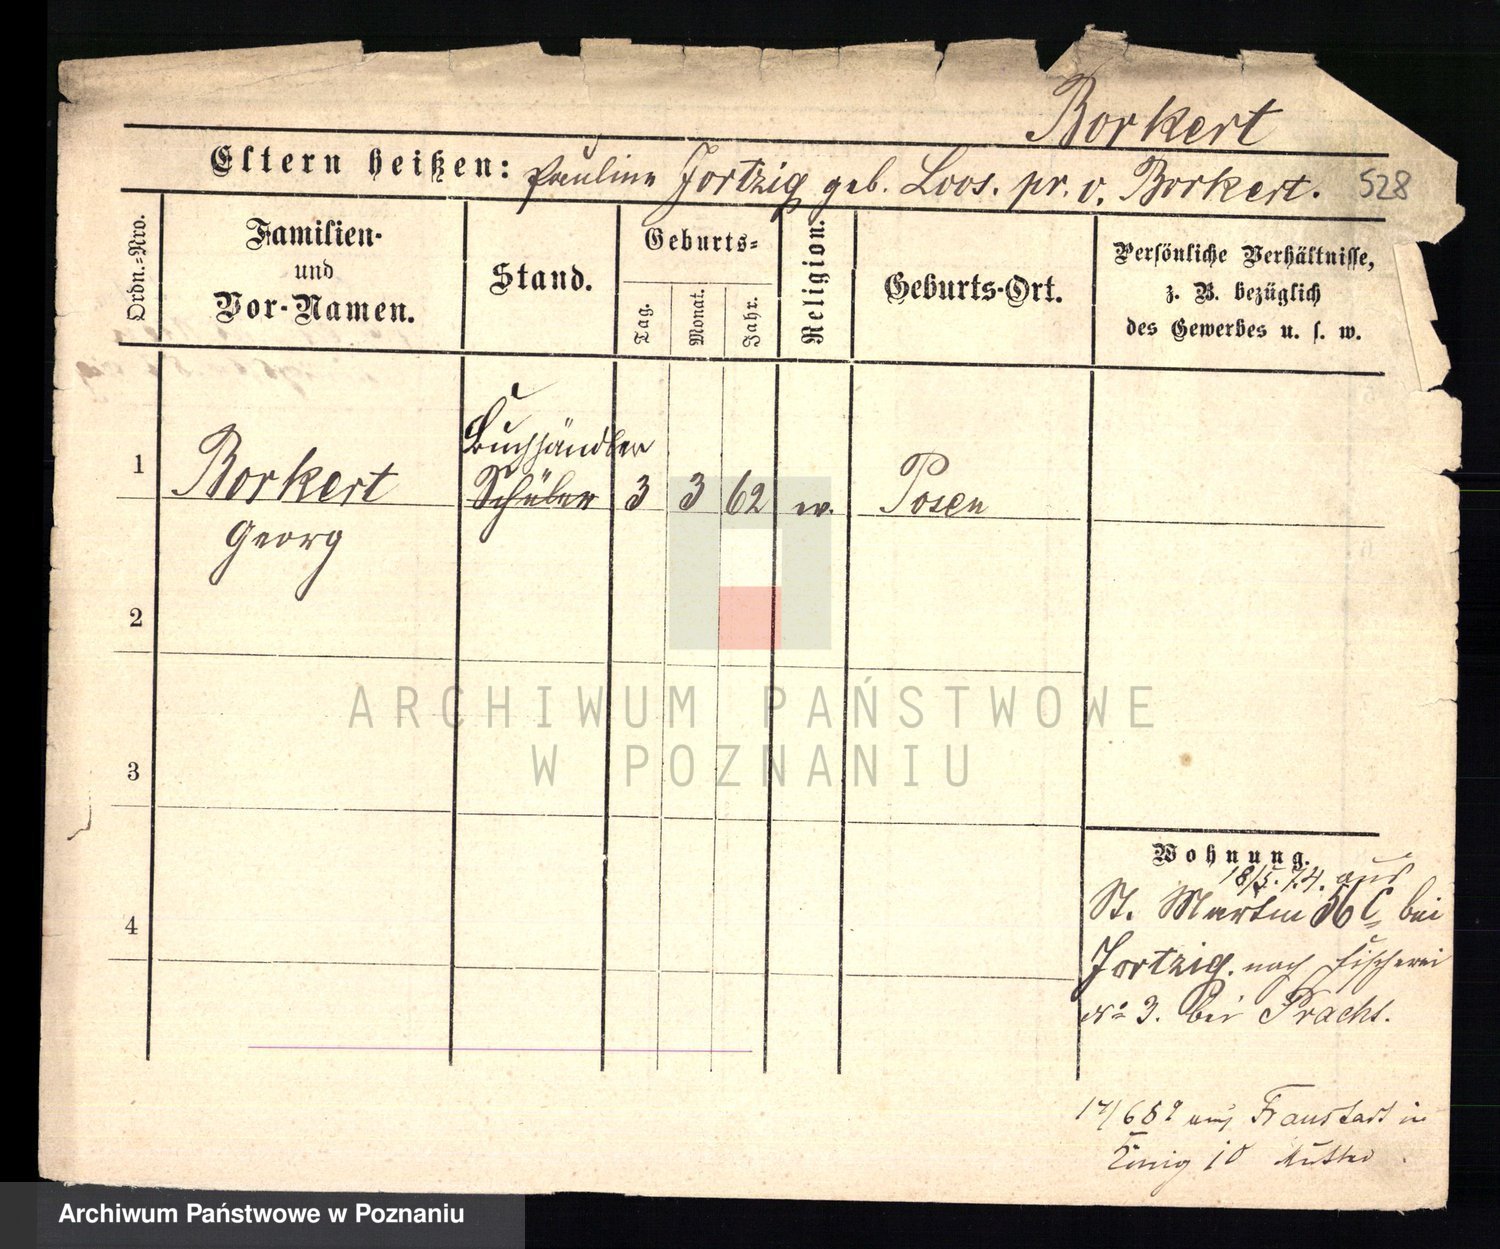 Borkert
Eltern heißen: Pauline Jortzig geb. Loos. pr. v. Borkert. 528
Ordn.-Nro.
Familien-
und
Vor-Namen.
Stand.
Geburts=
Tag.
Monat.
Jahr.
Religion.
Geburts-Ort.
Persönliche Verhältnisse,
z. B. bezüglich
des Gewerbes u. s. w.
Buchhändler
1 Borkert Schüler 3 3 62 ev. Posen
Georg
2
3
4
ARCHIWUM PAŃSTWOWE
W POZNANIU
Wohnung.
18/5. 74. aus
St. Martin 56 C bei
Jortzig. nach Fischerei
No 3. bei Pracht.
17/6 89 aus Fraustadt in
König 10 Mutter.
Archiwum Państwowe w Poznaniu